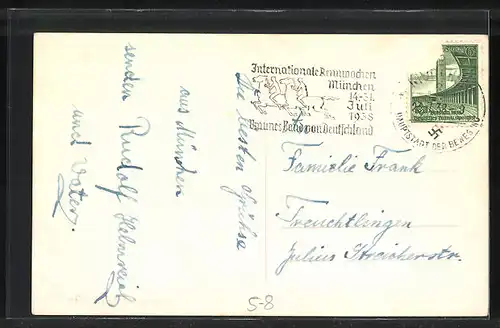 Internationale Rennwochen
München
14-31.
Juli
1938
Braunes Band von Deutschland
HAUPTSTADT DER BEWEGUNG
Die besten Grüße
aus München
senden Rudolf Helmreich
und Vater.
Familie Frank
Treuchtlingen
Julius Streicherstr.
5-8